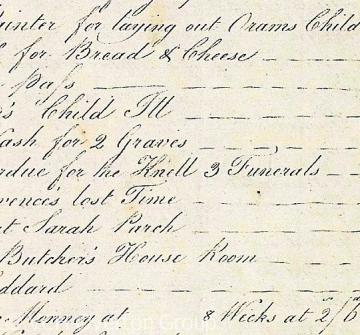 unter for laying out Orams Child
for Bread & Cheese
pass
's Child Ill
Cash for 2 Graves
rdue for the Knell 3 Funerals
rences lost Time
t Sarah Parch
Butcher's House Room
ddard
Monney at 8 Weeks at 2/6